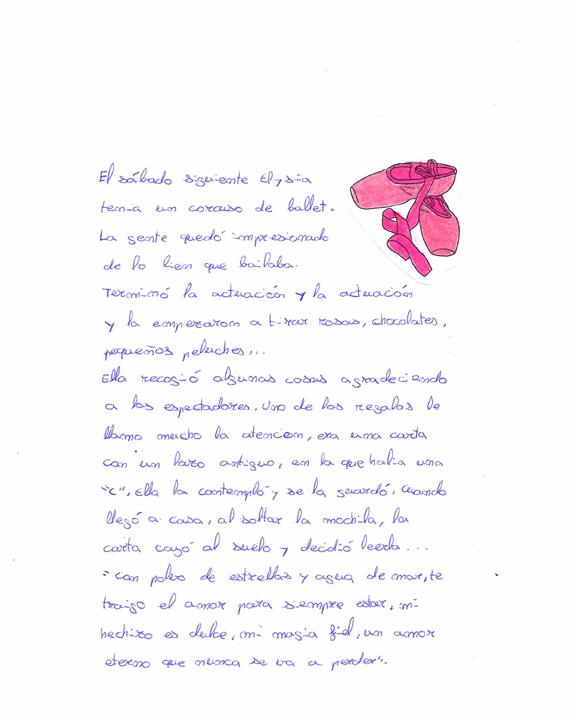 El sábado siguiente Elysia
tenía un concurso de ballet.
La gente quedó impresionado
de lo bien que bailaba.
Terminó la actuación y la actuación
y la empezaron a tirar rosas, chocolates,
pequeños peluches...
Ella recogió algunas cosas agradeciendo
a los espectadores. Uno de los regalos le
llamo mucho la atencion, era una carta
con un lazo antiguo, en la que había una
"C", Ella la contempló y se la guardó, cuando
llegó a casa, al soltar la mochila, la
carta cayó al suelo y decidió leerla...
"con polvo de estrellas y agua de mar, te
traigo el amor para siempre estar, mi
hechizo es dulce, mi magia fiel, un amor
eterno que nunca se va a perder".